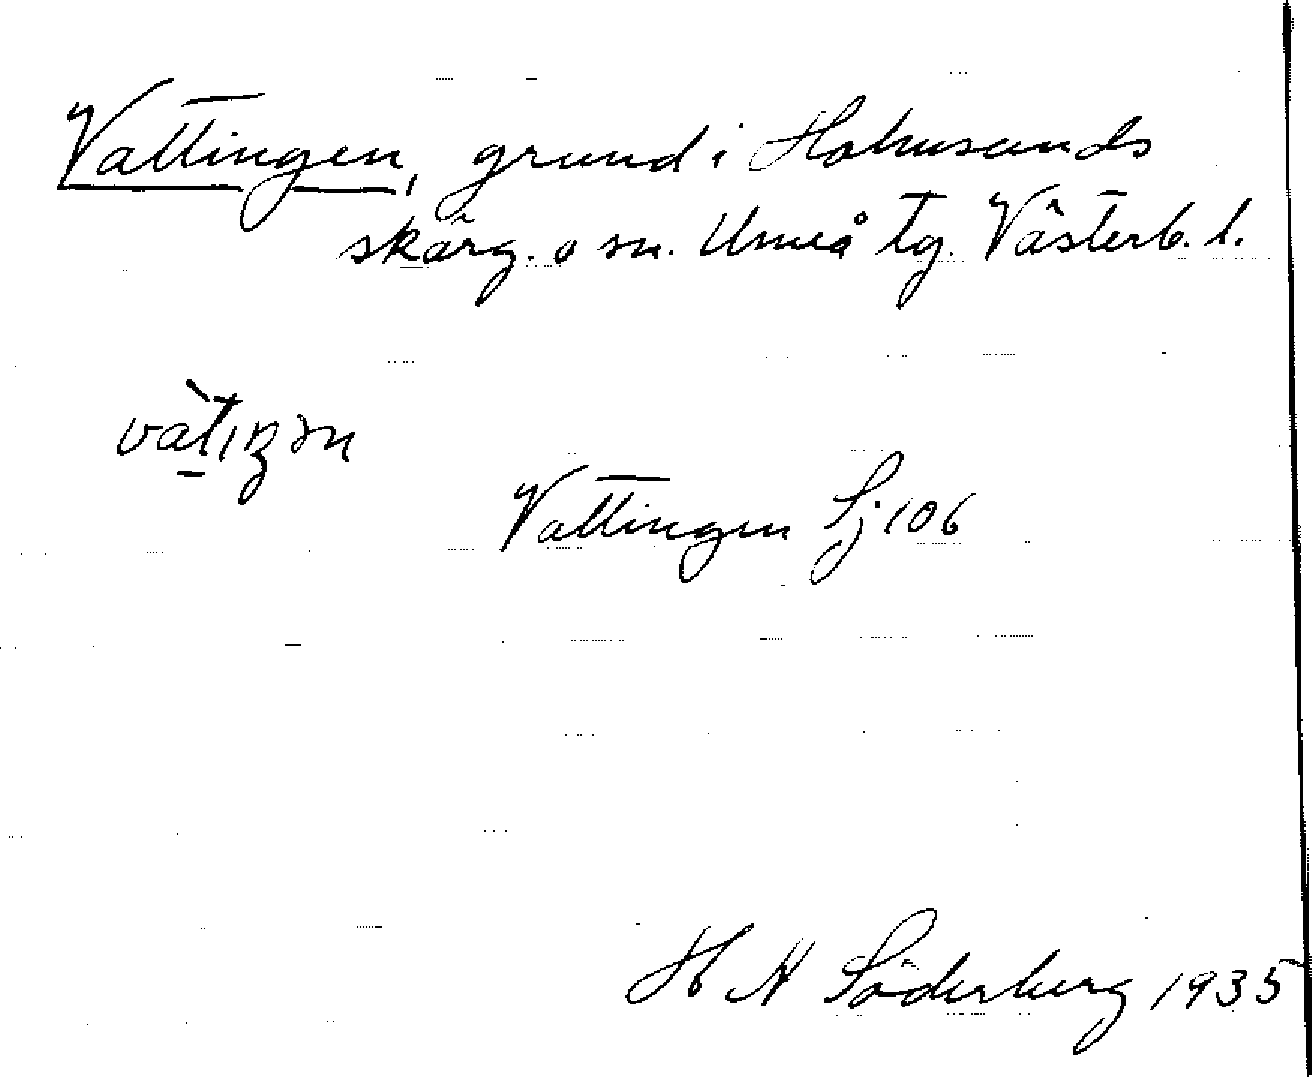 Vattingen, grund i Holmsunds
skärg. o sn. Umeå tg. Västerb. l.
vàt̠ıŋən
Vattingen Sj 106
H N Söderberg 1935